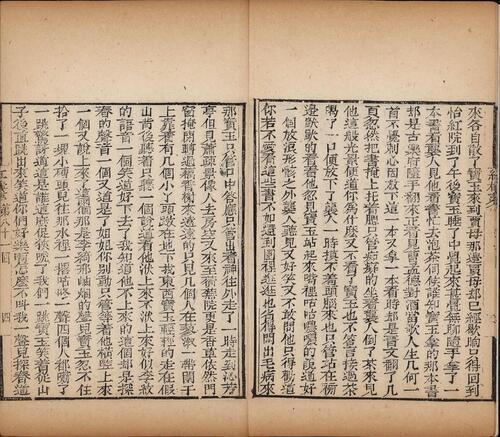 來各自散了寶玉到賈母那邊賈母却已經歇晌只得回到
怡紅院到了午後寶玉睡了中覺起來甚覺無聊隨手拿了一
本書看襲人見他看書忙去沏茶伺候誰知寶玉拿的那本書
却是古樂府隨手翻來正看見曹孟德對酒當歌人生幾何一
首不覺刺心因放下這一本又拿一本看時却是晉文翻了幾
頁忽然把書掩上托着腮只管痴痴的坐着襲人倒了茶來見
他這般光景便道你爲什麼又不看了寶玉也不答言接過茶
來喝了一口便放下了襲人一時摸不着頭腦也只管站在旁
邊獃獃的看着他忽見寶玉站起來嘴裡咕咕噥噥的說道好
一個放浪形骸之外襲人聽見又好笑又不敢問他只得勸道
你若不愛看這些書不如還到園裡逛逛也省得悶出毛病來
那寶玉只管口中答應只管出着神往外走了一時走到沁芳
亭但見蕭疎景像人去房空又來至蘅蕪院更是香草依然門
窗掩閉轉過藕香榭來遠遠的只見幾個人在蓼漵一帶闌干
上靠着有幾個小丫頭蹲在地下找東西寶玉輕輕的走在假
山背後聽着只聽一個說道看他洑上來不洑上來好似李紋
的語音一個笑道好下去了我知道他不上來的這個却是探
春的聲音一個又道是了姐姐你別動只管等着他橫竪上來
一個又說上來了這兩個是李綺邢岫烟的聲兒寶玉忍不住
拾了一塊小磚頭兒往那水裡一撂咕咚一聲四個人都嚇了
一跳驚訝道這是誰這麼促狹唬了我們一跳寶玉笑着從山
子後直跳出來笑道你們好樂啊怎麼不叫我一聲兒探春道
紅樓夢 第八十一回 四